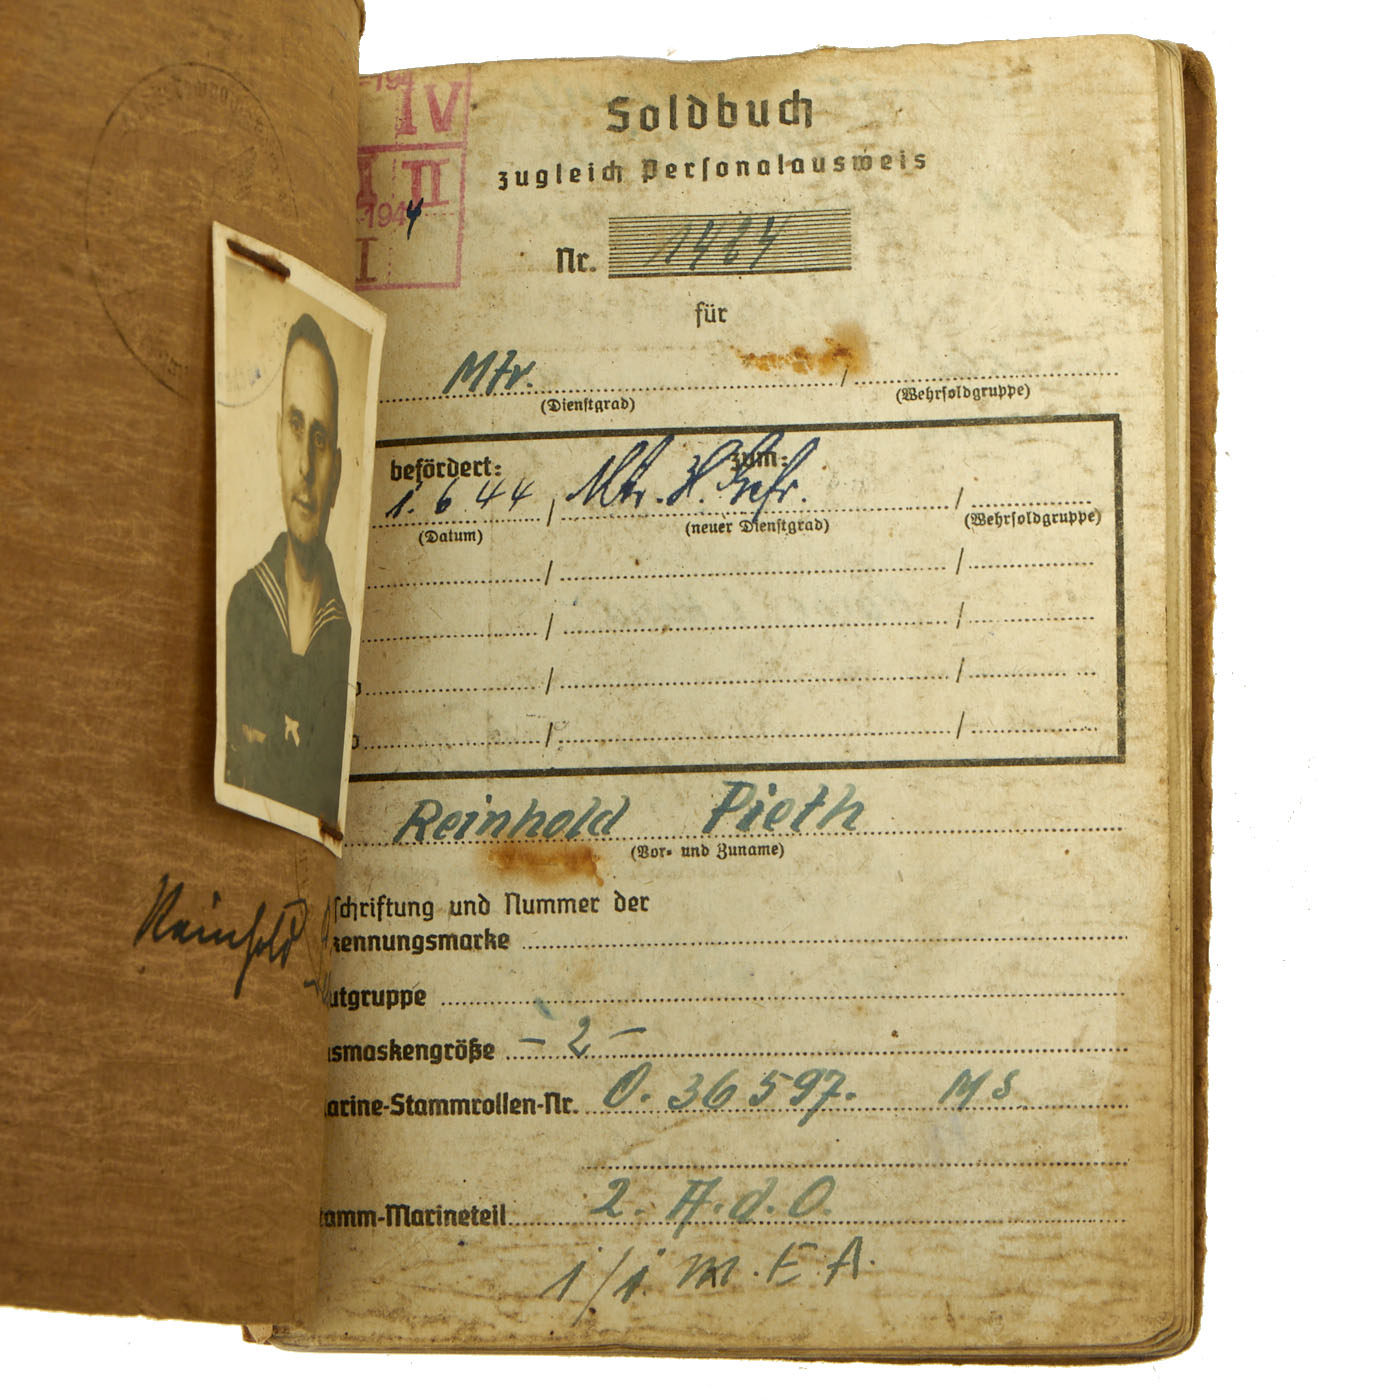 -194
IV
II
-1944
I
Soldbuch
zugleich Personalausweis
Nr. 1464
für
Mtr. /
(Dienstgrad) (Wehrsoldgruppe)
befördert: zum:
1. 6 44, Mtr. H. Gefr. /
(Datum) (neuer Dienstgrad) (Wehrsoldgruppe)
/ /
/ /
/ /
/ /
Reinhold Pieth
(Vor- und Zuname)
Reinhold
schriftung und Nummer der
kennungsmarke
utgruppe
asmaskengröße - 2 -
arine-Stammrollen-Nr. O. 36 597. MS
tamm-Marineteil 2. A. d. O.
1/1. M. E. A.